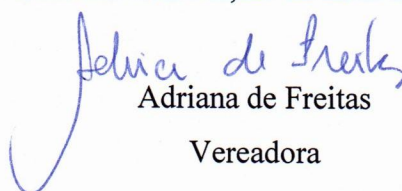 Adriana de Freitas
Adriana de Freitas
Vereadora